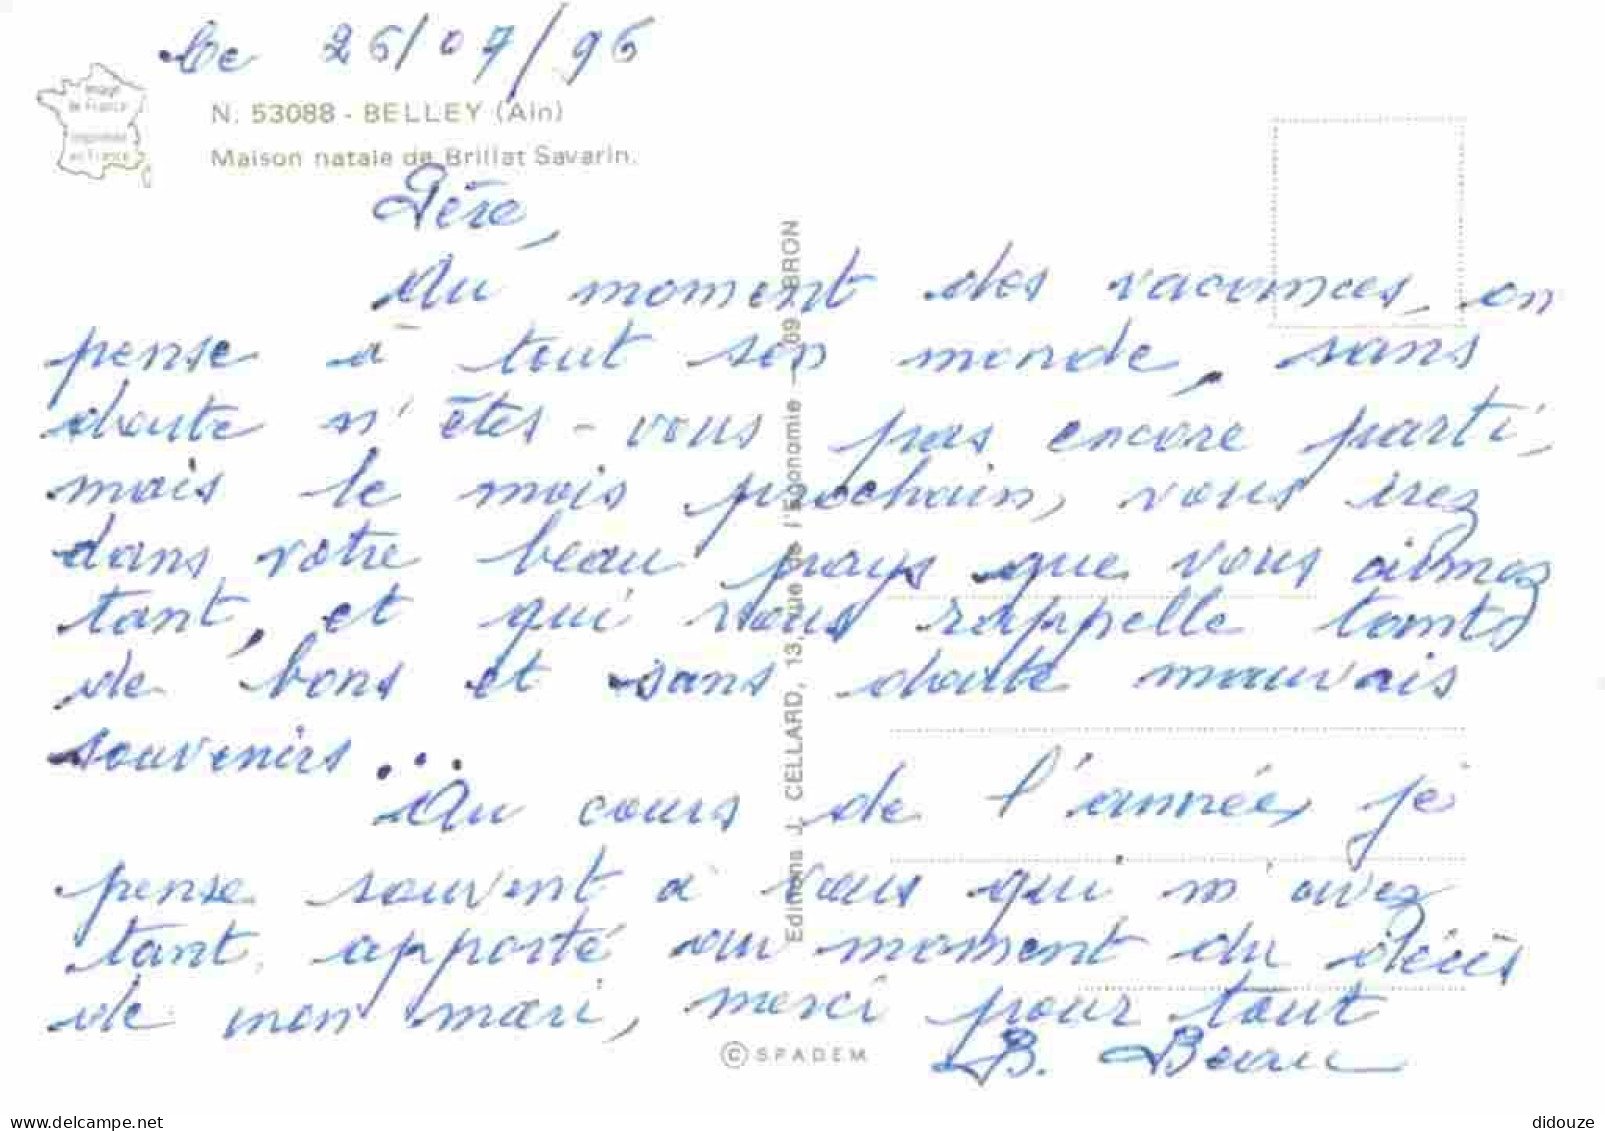 Le 26/07/96
Image
de France
Imprimée
en France
N. 53088 - BELLEY (Ain)
Maison natale de Brillat Savarin.
Père,
Au moment des vacances, on
pense à tout son monde, sans
doute n'êtes-vous pas encore parti,
mais le mois prochain, vous irez
dans votre beau pays que vous aimez
tant, et qui vous rappelle tants
de bons et sans doute mauvais
souvenirs...
Au cours de l'année je
pense souvent à vous qui m'avez
tant apporté au moment du décès
de mon mari, merci pour tout
B.
Editions J. CELLARD, 13, rue de l'Egonomie - 69 BRON
© SPADEM
delcampe.net
didouze